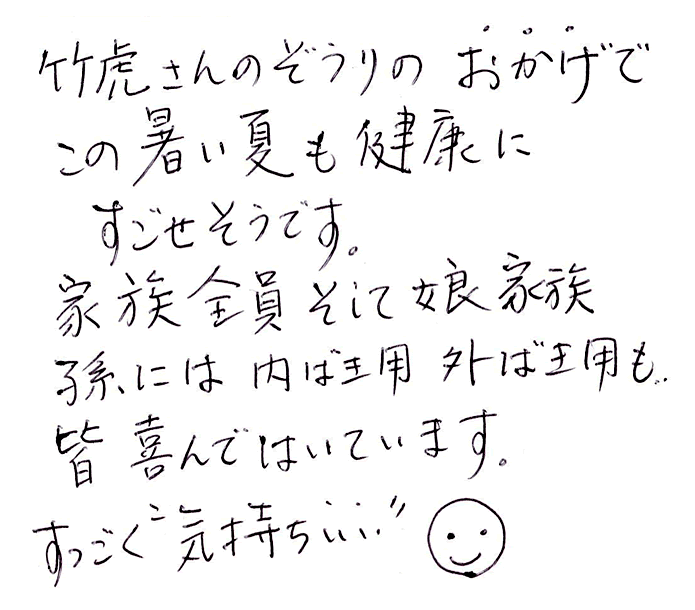 竹虎さんのぞうりの おかげで
この暑い夏も健康に
すごせそうです。
家族全員そして娘家族
孫には 内ばき用 外ばき用も..
皆喜んではいています。
すっごく“気持ちいい”